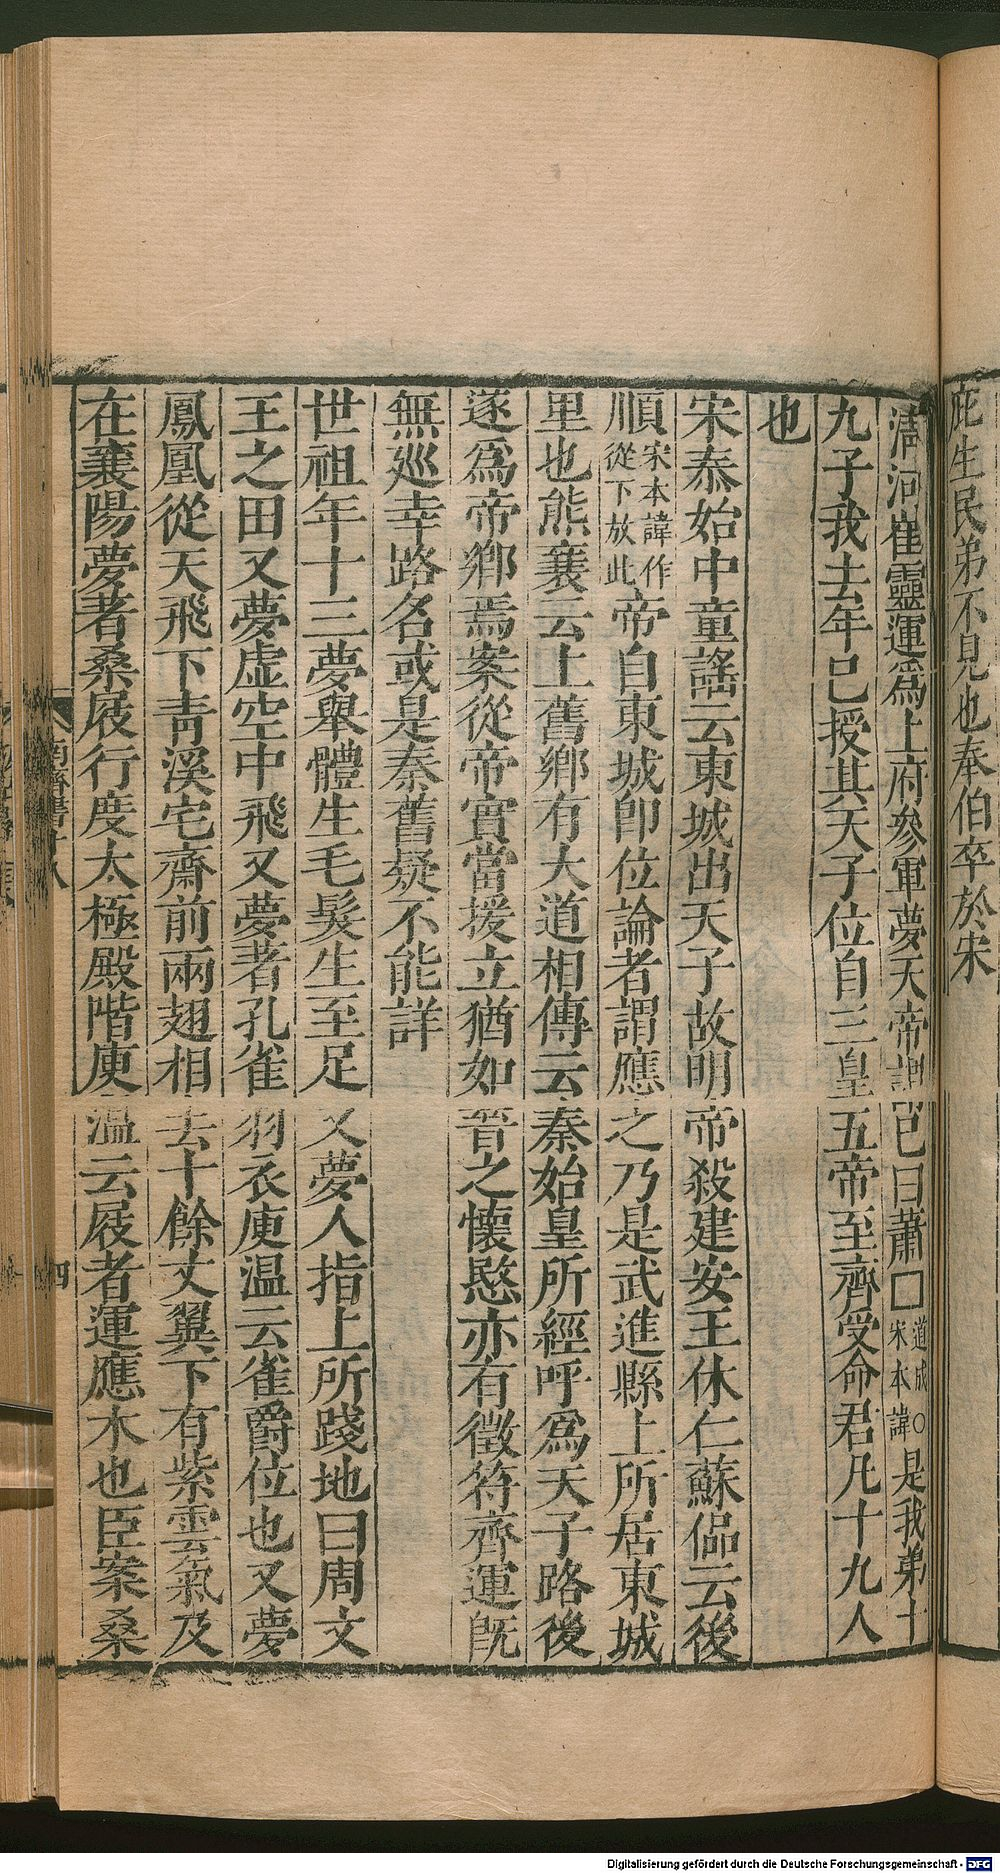 庇生民弟不見也奉伯卒於宋
清河崔靈運爲上府參軍夢天帝謂己曰蕭□道成宋本諱○是我弟十
九子我去年已授其天子位自三皇五帝至齊受命君凡十九人
也
宋泰始中童謠云東城出天子故明帝殺建安王休仁蘇偘云後
順宋本諱作從下放此帝自東城即位論者謂應之乃是武進縣上所居東城
里也熊襄云上舊鄉有大道相傳云秦始皇所經呼爲天子路後
遂爲帝鄉焉案從帝實當援立猶如晉之懷愍亦有徵符齊運旣
無巡幸路名或是秦舊疑不能詳
世祖年十三夢舉體生毛髮生至足又夢人指上所踐地曰周文
王之田又夢虛空中飛又夢著孔雀羽衣庾温云雀爵位也又夢
鳳凰從天飛下靑溪宅齋前兩翅相去十餘丈翼下有紫雲氣及
在襄陽夢著桑屐行度太極殿階庾温云屐者運應木也臣案桑
南齊書十八
四
Digitalisierung gefördert durch die Deutsche Forschungsgemeinschaft - DFG